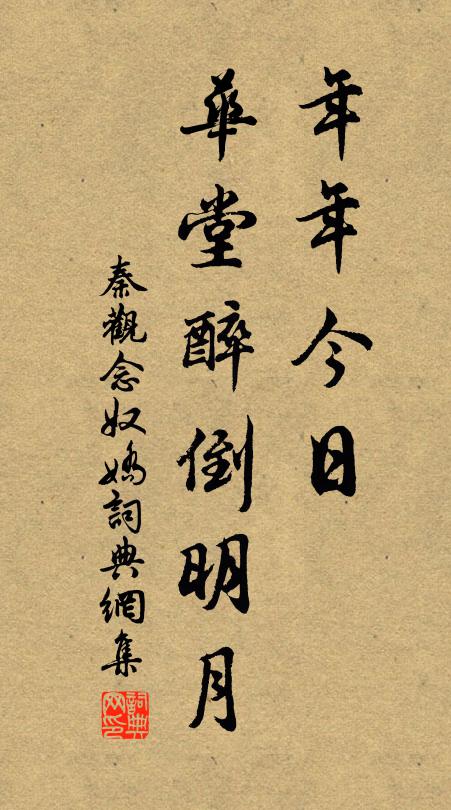 年年今日
華堂醉倒明月
秦觀念奴嬌詞典網集
詞典网印